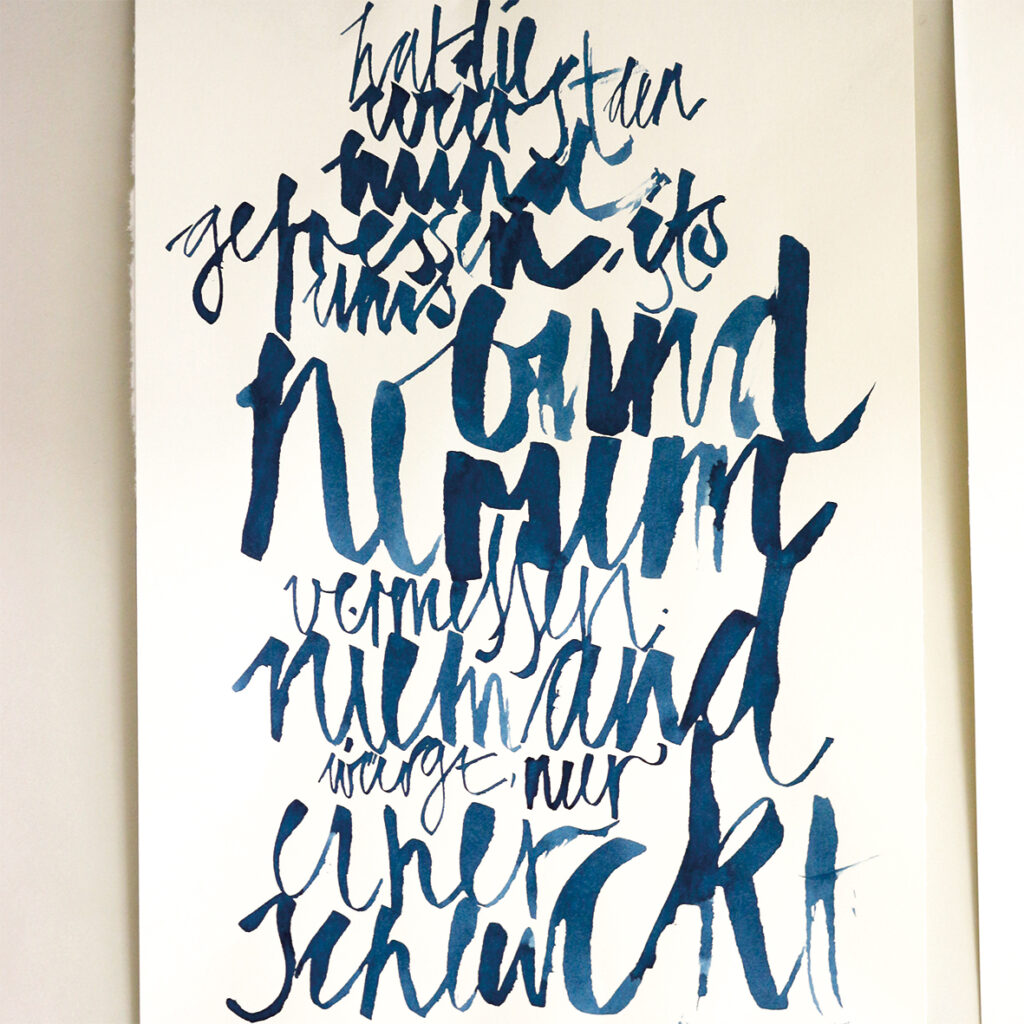 hat die
wurst den
mund
gefressen, ists
uns bund
nu mund
vermessen.
niemand
würgt, nur
einer
schluckt